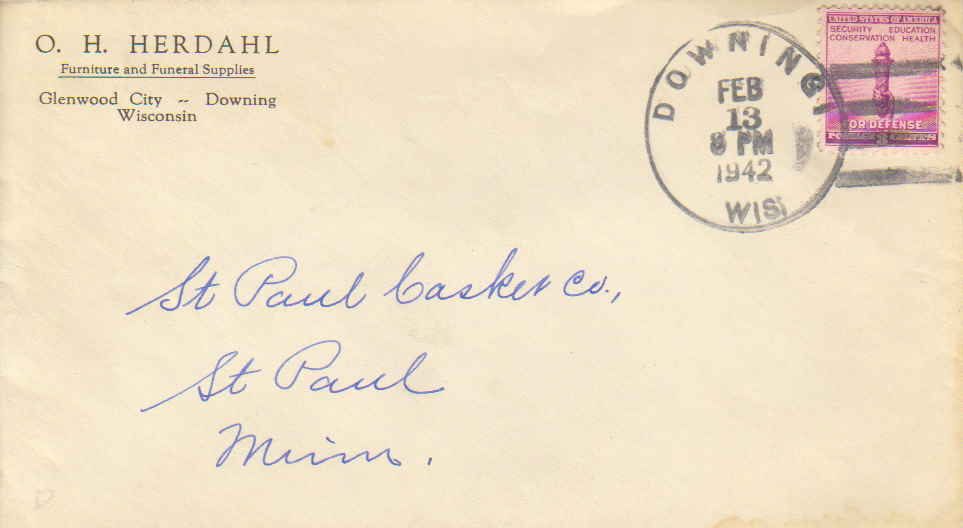 O. H. HERDAHL
Furniture and Funeral Supplies
Glenwood City -- Downing
Wisconsin
DOWNING
FEB
13
8 PM
1942
WIS
UNITED STATES OF AMERICA
SECURITY EDUCATION
CONSERVATION HEALTH
FOR DEFENSE
St Paul Casket Co.,
St Paul
Minn.